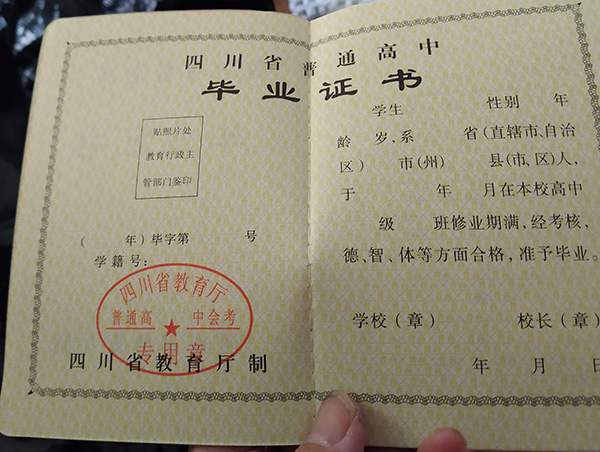 四川省普通高中
毕业证书
贴照片处
教育行政主
管部门鉴印
( 年)毕字第 号
学籍号:
四川省教育厅
普通高 中会考
专用章
四川省教育厅制
学生 性别 年
龄 岁,系 省(直辖市、自治
区) 市(州) 县(市、区)人,
于 年 月在本校高中
级 班修业期满,经考核,
德、智、体等方面合格,准予毕业。
学校(章) 校长(章)
年 月 日